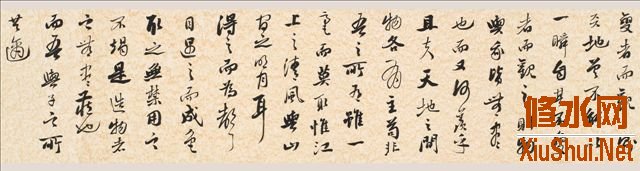 變者而觀之則
天地曾不能以
一瞬自其不變
者而觀之則物
與我皆無盡
也而又何羨乎
且夫天地之間
物各有主苟非
吾之所有雖一
毫而莫取惟江
上之清風與山
間之明月耳
得之而為聲
目遇之而成色
取之無禁用之
不竭是造物者
之無盡藏也
而吾與子之所
共適
修水网
XiuShui.Net